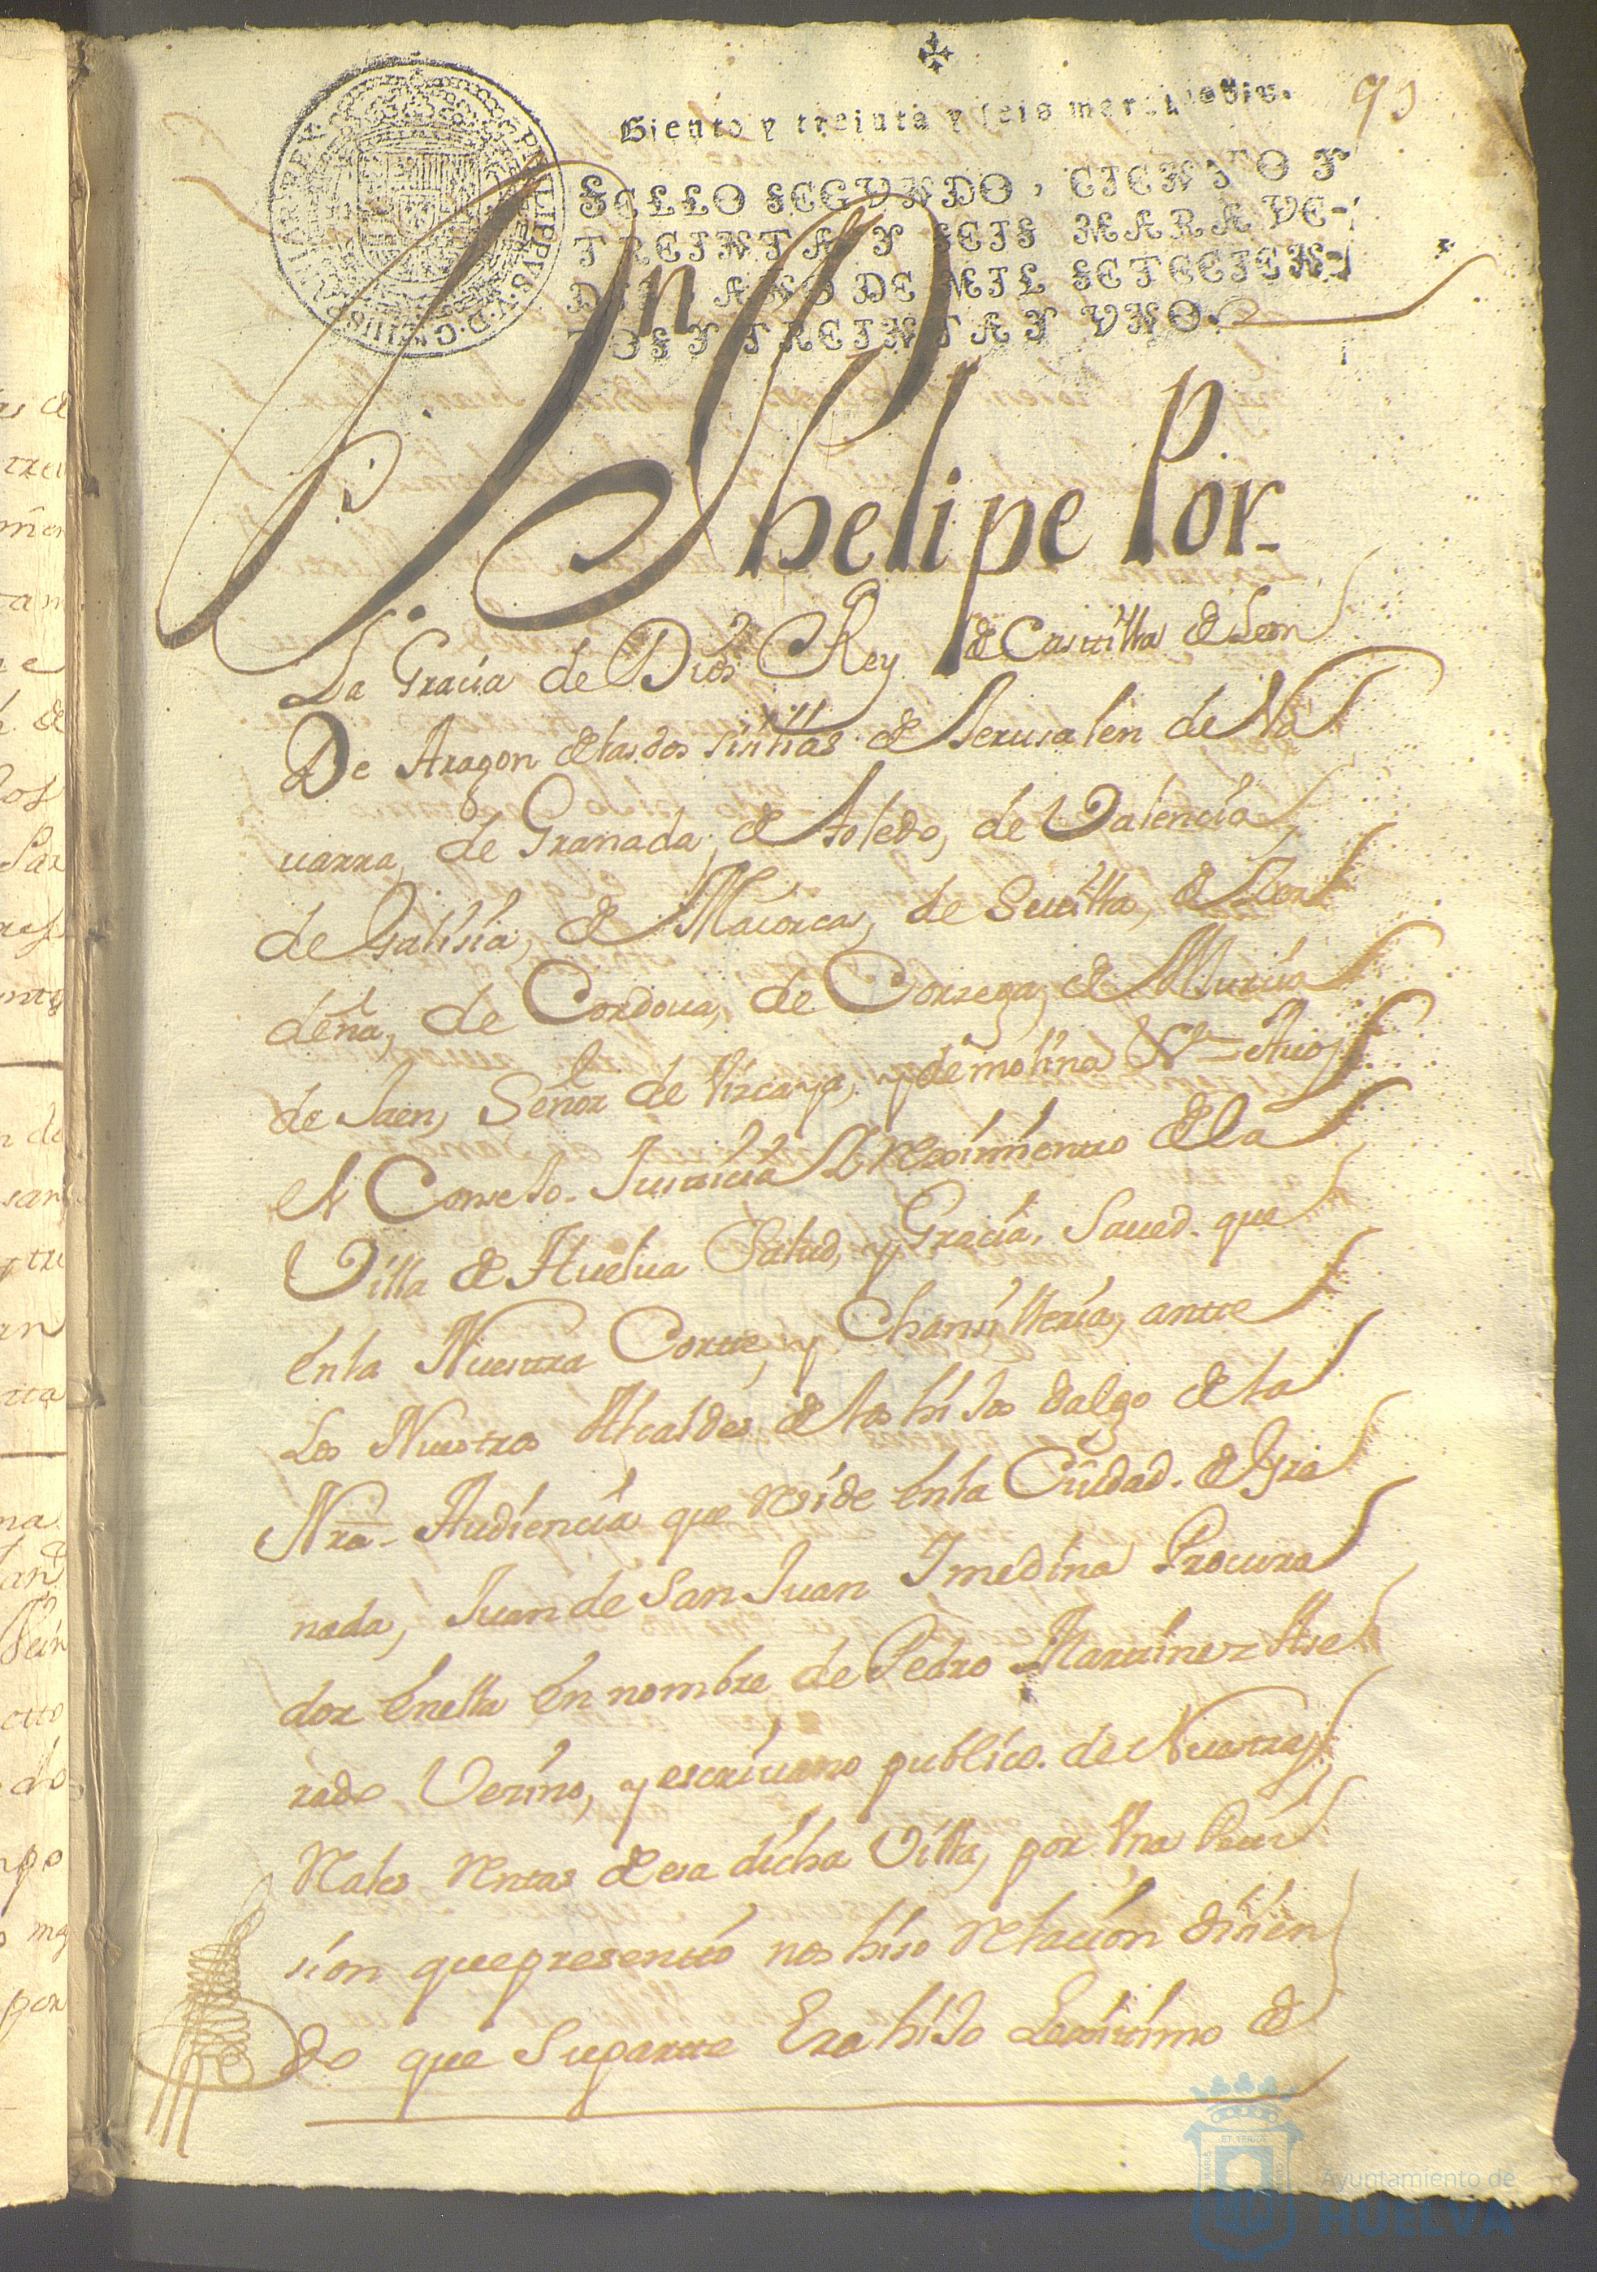 93
Ciento y treinta y seis maravedis.
SELLO SEGVNDO, CIENTO Y
TREINTA Y SEIS MARAVE-
DIS, AÑO DE MIL SETECIEN-
TOS Y TREINTA Y VNO.
PHILIPPVS V D G HISPANIAR REX
Dn Phelipe Por
La Gracia de Dios Rey de Castilla de Leon
De Aragon delas dos sisilias de Jerusalen de Na
uarra, de Granada, de toledo, de Valencia
de Galisia, de Maiorca, de Seuilla, de Zer
deña, de Cordoua, de Corzega, de Murcia
de Jaen, Señor de Vizcaya, y de molina &ª Auos
el Conselo. Justicia y reximiento de la
Villa de Huelua Salud, y Gracia. Saued. que
en la Nuestra Corte, y Chansilleria, ante
Los Nuestros Alcaldes de los hiJos dalgo de la
Nra Audiencia que reside en la Ciudad. de Gra
nada, Juan de San Juan I medina Procura
dor en ella en nombre de Pedro Martinez Alue
rado Vezino, y escriuano publico. de Nuestras
Rales Rentas de esa dicha Villa, por Vna Peti
sion que presentó nos hiso relacion disien
do que Su parte Era hiJo Lexitimo de
Ayuntamiento de
HUELVA